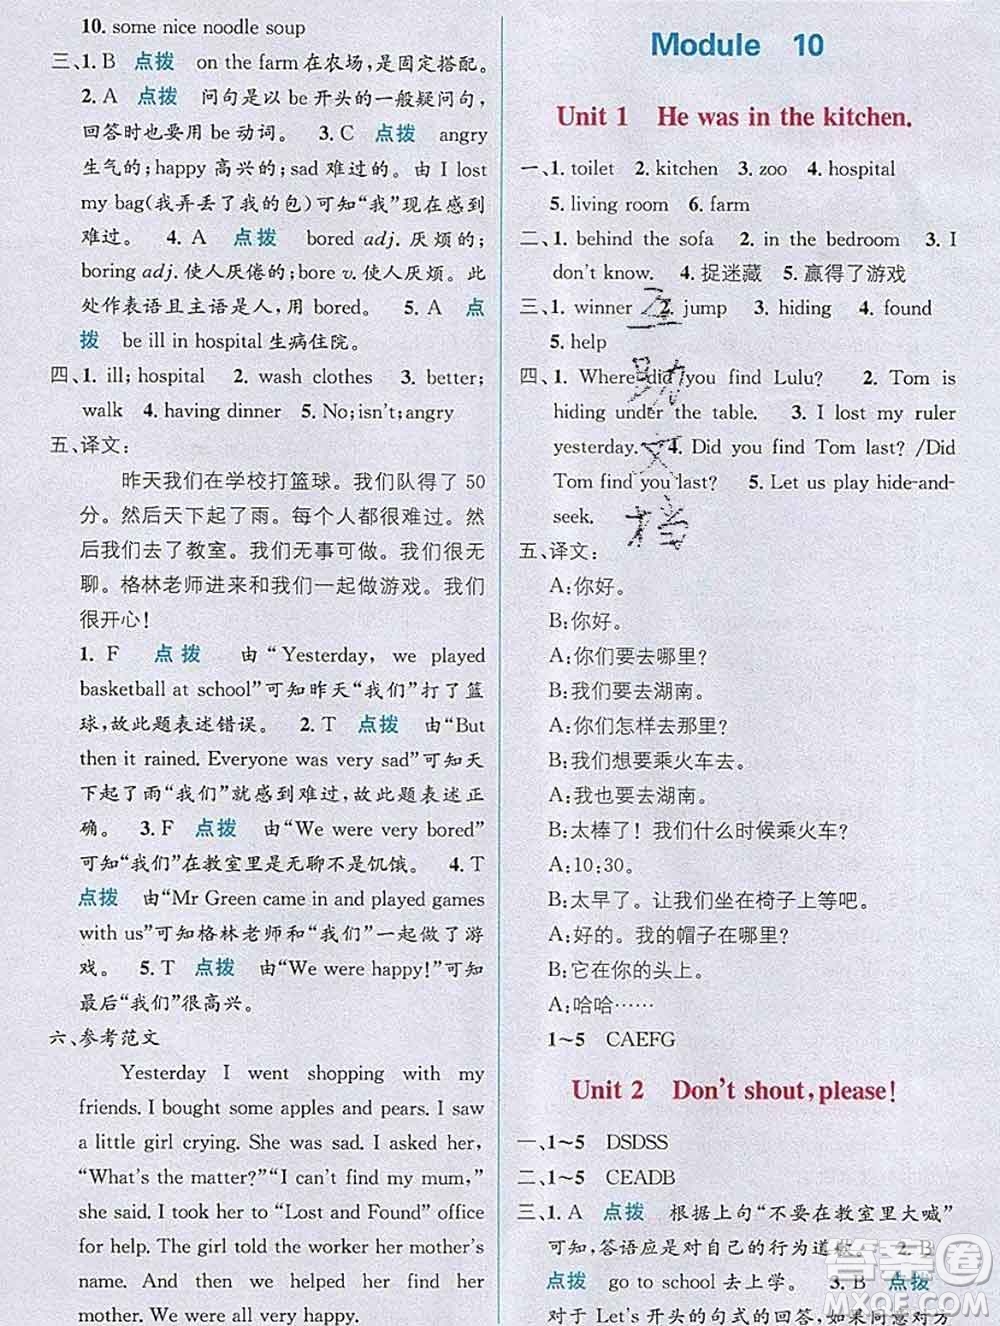 10. some nice noodle soup
三、1. B 点拨 on the farm 在农场，是固定搭配。
2. A 点拨 问句是以 be 开头的一般疑问句，
回答时也要用 be 动词。 3. C 点拨 angry
生气的；happy 高兴的；sad 难过的。由 I lost
my bag(我弄丢了我的包)可知“我”现在感到
难过。 4. A 点拨 bored adj. 厌烦的；
boring adj. 使人厌倦的；bore v. 使人厌烦。此
处作表语且主语是人，用 bored。 5. A 点
拨 be ill in hospital 生病住院。
四、1. ill; hospital 2. wash clothes 3. better;
walk 4. having dinner 5. No;isn't;angry
五、译文：
昨天我们在学校打篮球。我们队得了 50
分。然后天下起了雨。每个人都很难过。然
后我们去了教室。我们无事可做。我们很无
聊。格林老师进来和我们一起做游戏。我们
很开心！
1. F 点拨 由“Yesterday, we played
basketball at school”可知昨天“我们”打了篮
球，故此题表述错误。 2. T 点拨 由“But
then it rained. Everyone was very sad”可知天
下起了雨“我们”就感到难过，故此题表述正
确。 3. F 点拨 由“We were very bored”
可知“我们”在教室里是无聊不是饥饿。 4. T
点拨 由“Mr Green came in and played games
with us”可知格林老师和“我们”一起做了游
戏。 5. T 点拨 由“We were happy!”可知
最后“我们”很高兴。
六、参考范文
Yesterday I went shopping with my
friends. I bought some apples and pears. I saw
a little girl crying. She was sad. I asked her,
“What's the matter?”“I can't find my mum,”
she said. I took her to “Lost and Found” office
for help. The girl told the worker her mother's
name. And then we helped her find her
mother. We were all very happy.
Module 10
Unit 1 He was in the kitchen.
一、1. toilet 2. kitchen 3. zoo 4. hospital
5. living room 6. farm
二、1. behind the sofa 2. in the bedroom 3. I
don't know. 4. 捉迷藏 5. 赢得了游戏
三、1. winner 2. jump 3. hiding 4. found
5. help
四、1. Where did you find Lulu? 2. Tom is
hiding under the table. 3. I lost my ruler
yesterday. 4. Did you find Tom last? /Did
Tom find you last? 5. Let us play hide-and-
seek.
五、译文：
A：你好。
B：你好。
A：你们要去哪里？
B：我们要去湖南。
A：你们怎样去那里？
B：我们想要乘火车去。
A：我也要去湖南。
B：太棒了！我们什么时候乘火车？
A：10：30。
B：太早了。让我们坐在椅子上等吧。
A：好的。我的帽子在哪里？
B：它在你的头上。
A：哈哈……
1~5 CAEFG
Unit 2 Don't shout, please!
一、1~5 DSDSS
二、1~5 CEADB
三、1. A 点拨 根据上句“不要在教室里大喊”
可知，答语应是对自己的行为道歉。 2. B
点拨 go to school 去上学。 3. B 点拨
对于 Let's 开头的句式的回答，如果同意对方
互助文档
答案圈
MXQE.COM